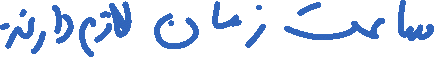 ساعت زمان لازم دارند